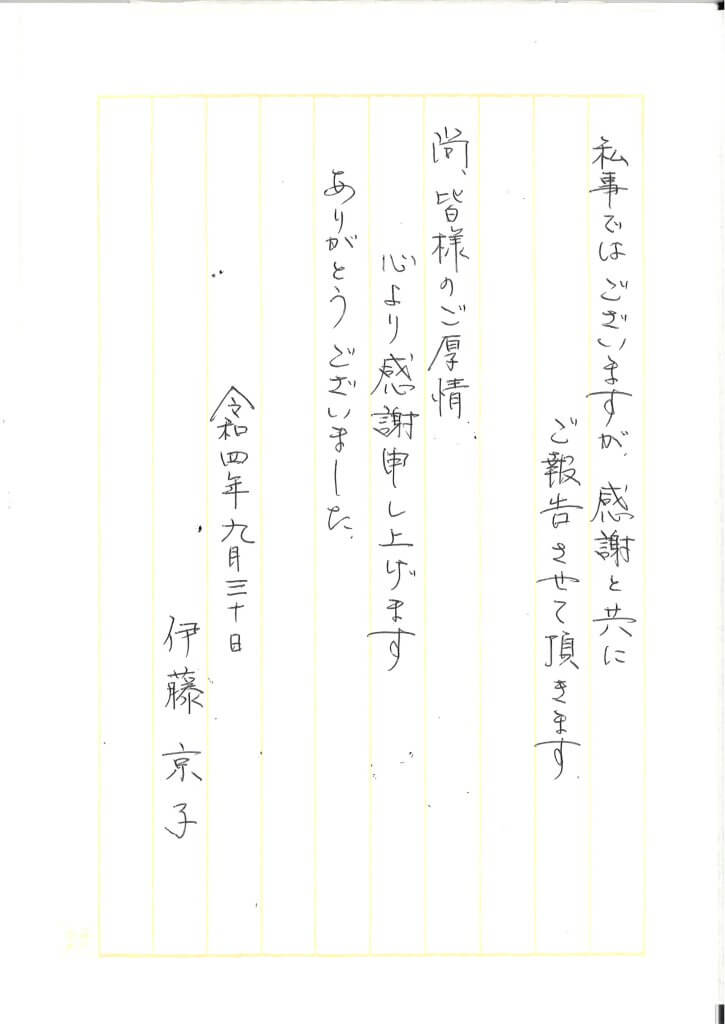 私事ではございますが、感謝と共に
ご報告させて頂きます
尚、皆様のご厚情
心より感謝申し上げます
ありがとうございました。
令和四年九月三十日
伊藤京子